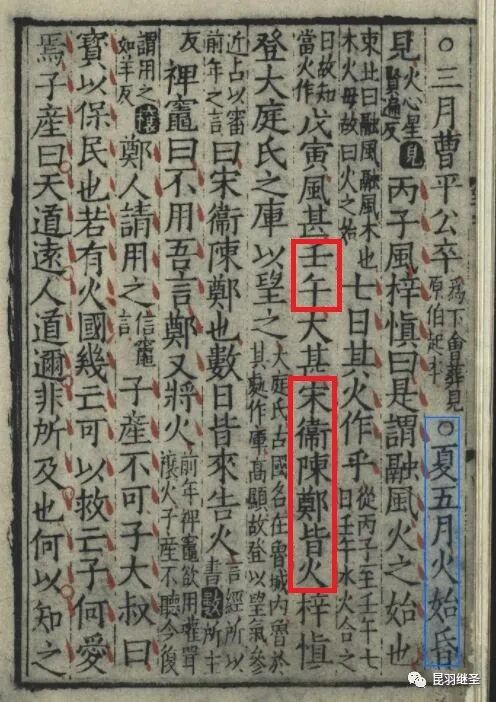 ○三月曹平公卒爲下會葬見原伯起本○夏五月火始昏
見火心星見賢遍反丙子風梓慎曰是謂融風火之始也
東北曰融風融風木也木火母故曰火之始七日其火作乎從丙子至壬午七日壬午水火合之
日故知當火作戊寅風甚壬午大甚宋衞陳鄭皆火梓慎
登大庭氏之庫以望之大庭氏古國名在魯城内魯於其處作庫高顯故登以望氣參
近占以審前年之言曰宋衞陳鄭也數日皆來告火言經所以書數所主
反裨竈曰不用吾言鄭又將火前年裨竈欲用瓘斝禳火子產不聽今復
請用之禳如羊反鄭人請用之信竈言子產不可子大叔曰
寶以保民也若有火國幾亡可以救亡子何愛
焉子產曰天道遠人道邇非所及也何以知之
昆羽继圣